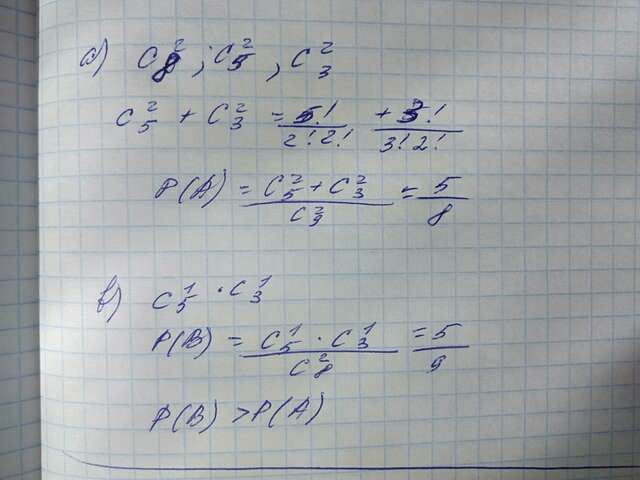 a) C₈² ; C₅² , C₃²
C₅² + C₃² = 5!/(2! 2!) + 3!/(3! 2!)
P(A) = (C₅² + C₃²)/C₉² = 5/8
b) C₅¹ · C₃¹
P(B) = (C₅¹ · C₃¹)/C₈² = 5/9
P(B) > P(A)